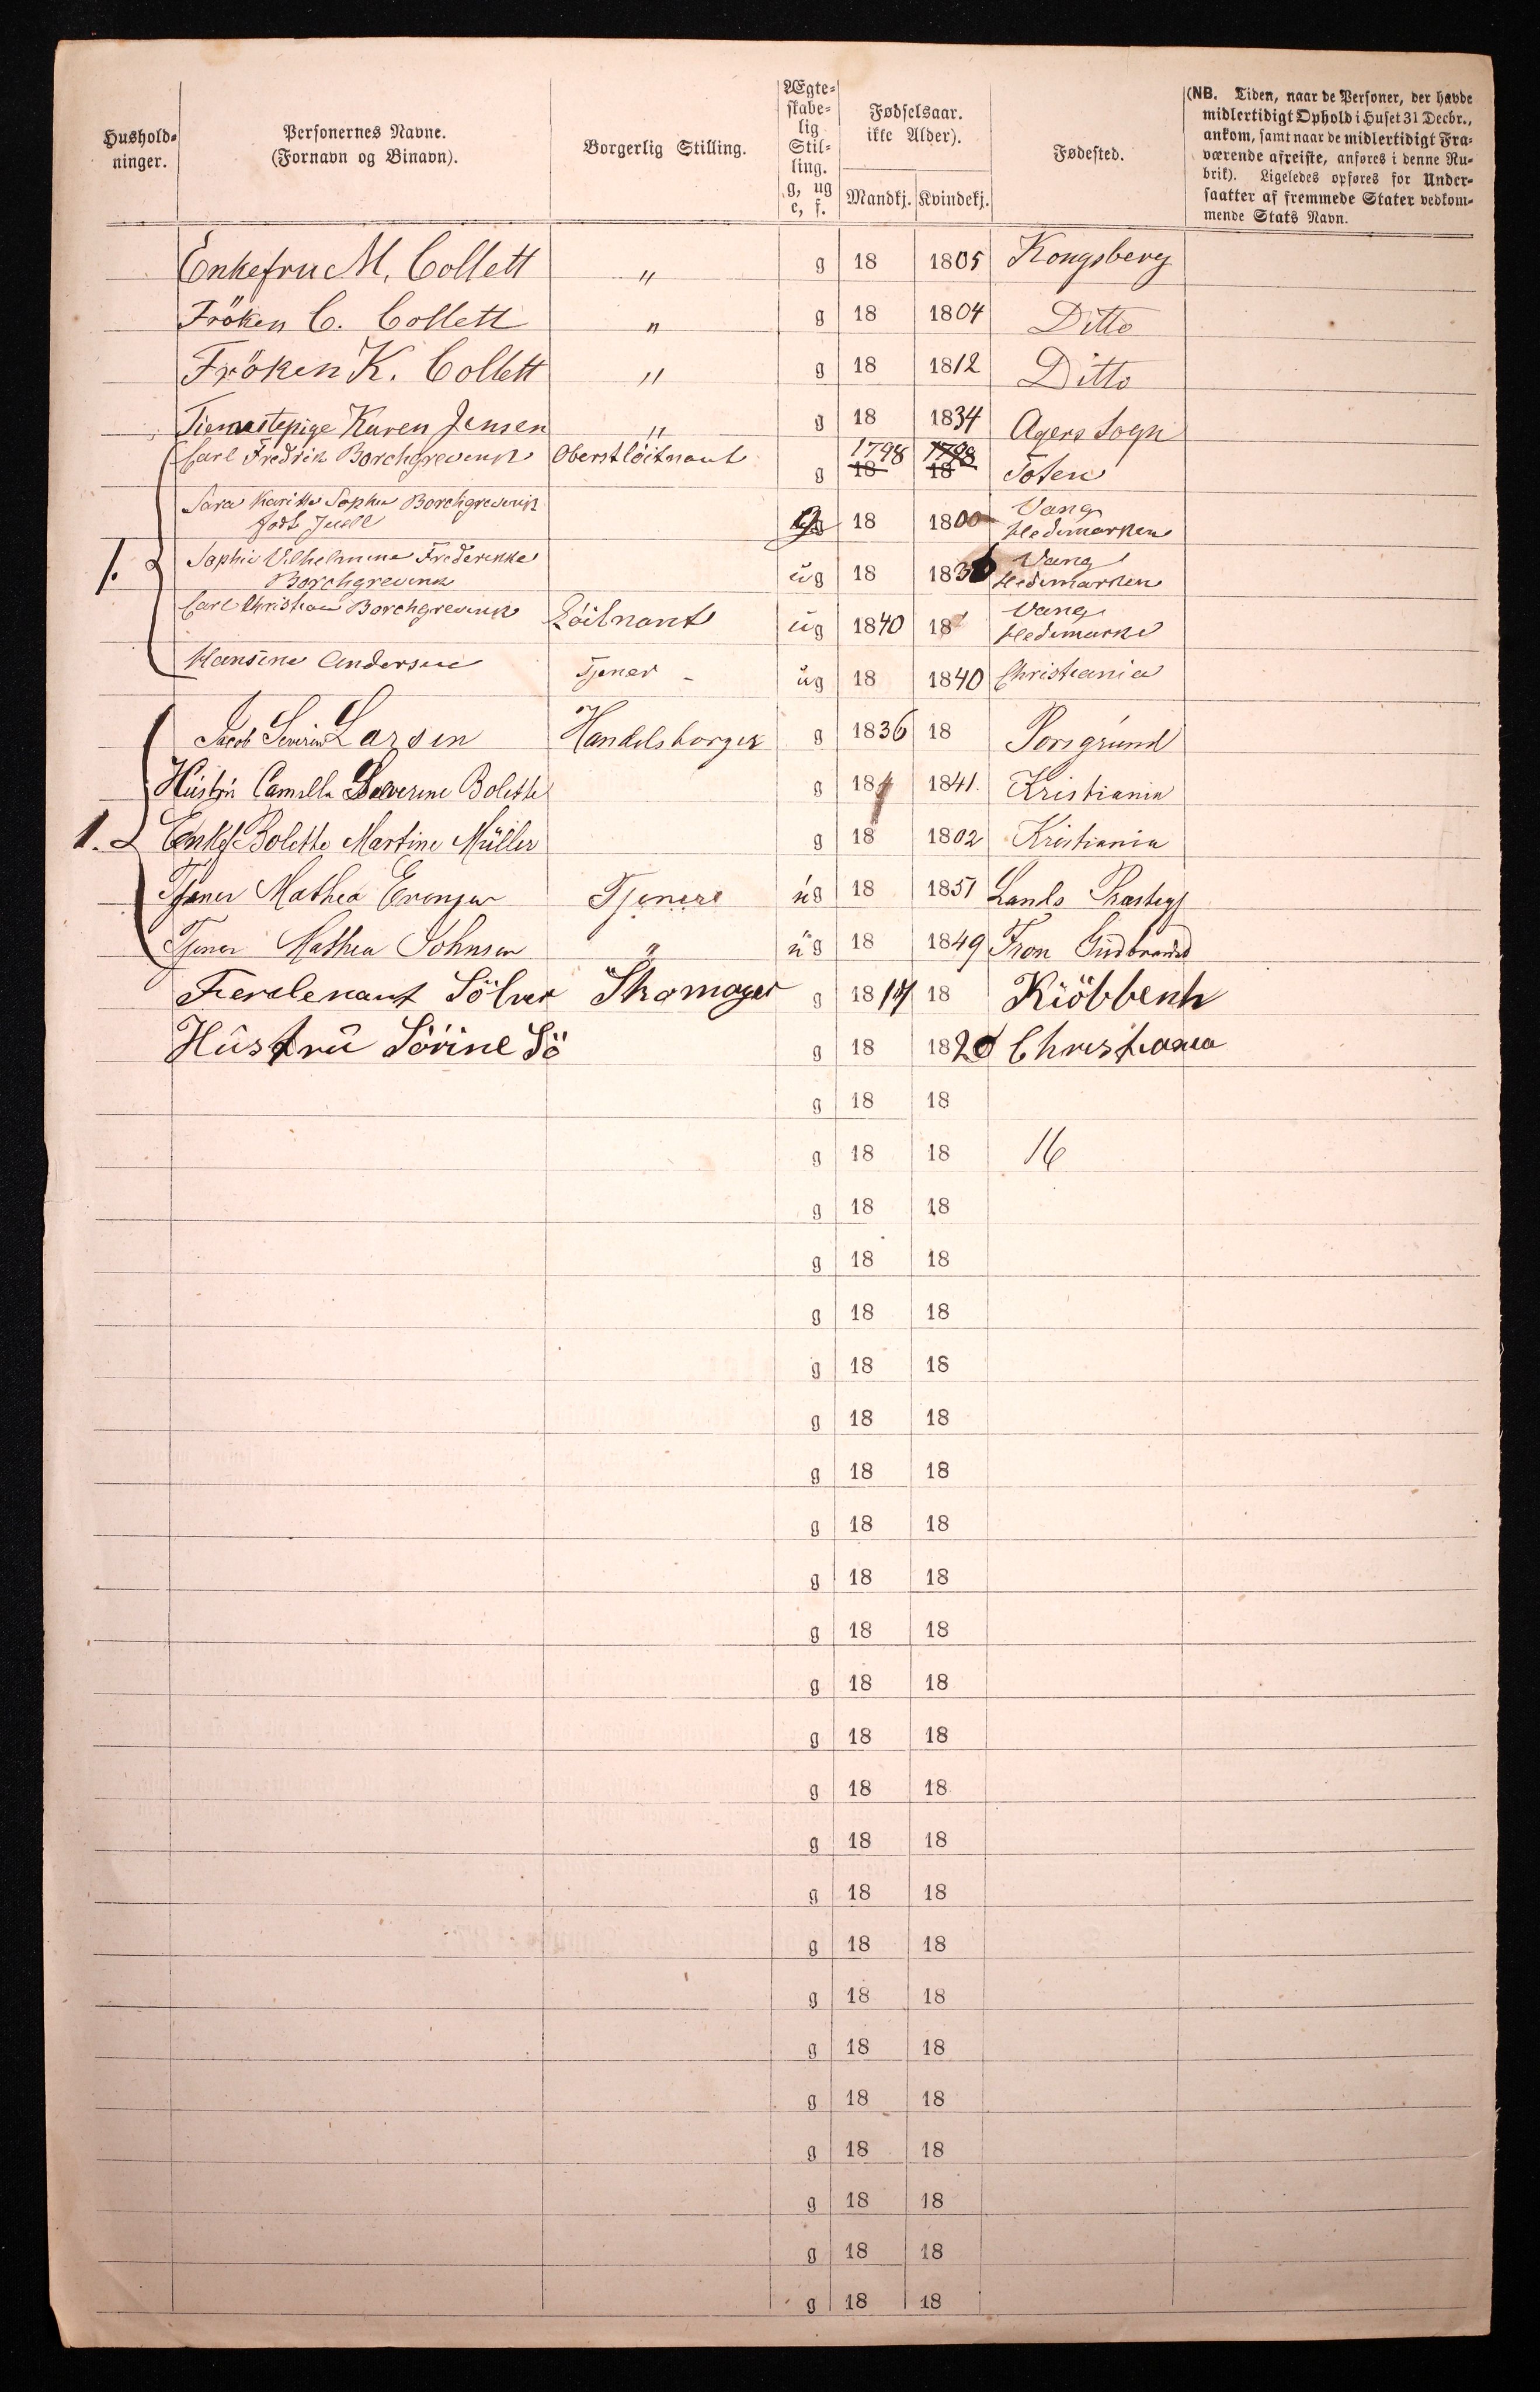 Hushold-
ninger.
Personernes Navne.
(Fornavn og Binavn).
Borgerlig Stilling.
Ægte-
skabe-
lig
Stil-
ling.
g, ug
e, f.
Fødselsaar.
ikke Alder).
Mandkj. Kvindekj.
Fødested.
(NB. Tiden, naar de Personer, der havde
midlertidigt Ophold i Huset 31 Decbr.,
ankom, samt naar de midlertidigt Fra-
værende afreiste, anføres i denne Ru-
brik). Ligeledes opføres for Under-
saatter af fremmede Stater vedkom-
mende Stats Navn.
Enkefru M. Collett " g 18 1805 Kongsberg
Fröken C. Collett " g 18 1804 Ditto
Fröken K. Collett " g 18 1812 Ditto
Tienestepige Karen Jensen " g 18 1834 Agers Sogn
Carl Fredrik Borchgrevink Oberstlöitnant g 1798 18 1798 18 Toten
Sara Sophie Borchgrevink g 18 1800 Vang
födt Juell Hedemarken
1. Sophie Vilhelmine Frederikke ug 18 1836 Vang
Borchgrevink Hedemarken
Carl Christian Borchgrevink Löitnant ug 1840 18 Vang
Hedemarke
Hansine Andersen Tjener - ug 18 1840 Christiania
Jacob Severin Larsen Handelsborger g 1836 18 Porsgrund
Hustru Camilla Severine Bolette g 18 1841. Kristiania
1. Enkef Bolette Martine Müller g 18 1802 Kristiania
Tjener Mathea Evensen Tjenere ug 18 1851 Lands Præstegj
Tjener Mathea Johnsen " ug 18 1849 Fron Gudbrandsd
Ferdenant Sölver Skomager g 18 18 Kiöbbenh
Hustru Sörine Sö g 18 1820 Christiania
g 18 18
g 18 18 16
g 18 18
g 18 18
g 18 18
g 18 18
g 18 18
g 18 18
g 18 18
g 18 18
g 18 18
g 18 18
g 18 18
g 18 18
g 18 18
g 18 18
g 18 18
g 18 18
g 18 18
g 18 18
g 18 18
g 18 18
g 18 18
g 18 18